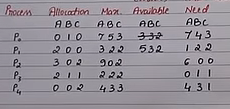 Process Allocation Max. Available Need
A B C A B C A B C A B C
P0 0 1 0 7 5 3 3 3 2 7 4 3
P1 2 0 0 3 2 2 5 3 2 1 2 2
P2 3 0 2 9 0 2 6 0 0
P3 2 1 1 2 2 2 0 1 1
P4 0 0 2 4 3 3 4 3 1